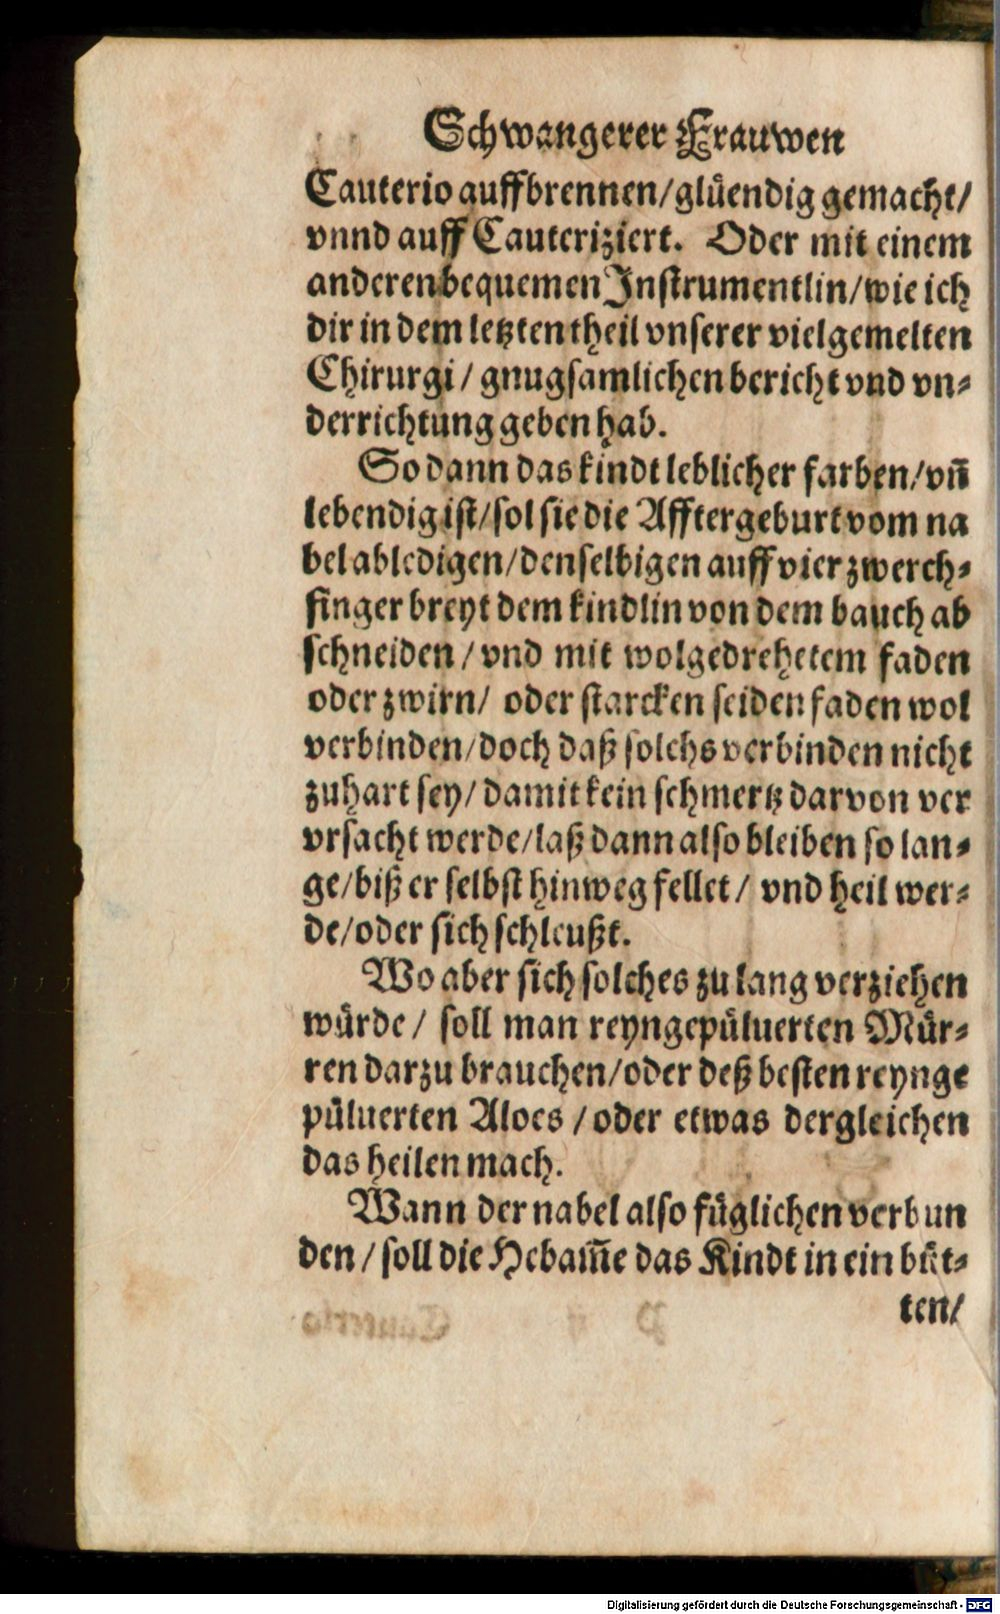 Schwangerer Frauwen
Cauterio auffbrennen/glüendig gemacht/
vnnd auff Cauteriziert. Oder mit einem
anderen bequemen Instrumentlin/wie ich
dir in dem letzten theil vnserer vielgemelten
Chirurgi/ gnugsamlichen bericht vnd vn⸗
derrichtung geben hab.
So dann das kindt leblicher farben/vñ
lebendig ist/sol sie die Afftergeburt vom na
bel abledigen/denselbigen auff vier zwerch⸗
finger breyt dem kindlin von dem bauch ab
schneiden/vnd mit wolgedrehetem faden
oder zwirn/ oder starcken seiden faden wol
verbinden/doch daß solchs verbinden nicht
zuhart sey/damit kein schmertz darvon ver
vrsacht werde/laß dann also bleiben so lan⸗
ge/biß er selbst hinweg fellet/ vnd heil wer⸗
de/oder sich schleußt.
Wo aber sich solches zu lang verziehen
würde/ soll man reyngepüluerten Mür⸗
ren darzu brauchen/oder deß besten reynge
püluerten Aloes/oder etwas dergleichen
das heilen mach.
Wann der nabel also füglichen verbun
den/soll die Hebam̃e das Kindt in ein büt⸗
ten/
Digitalisierung gefördert durch die Deutsche Forschungsgemeinschaft - DFG